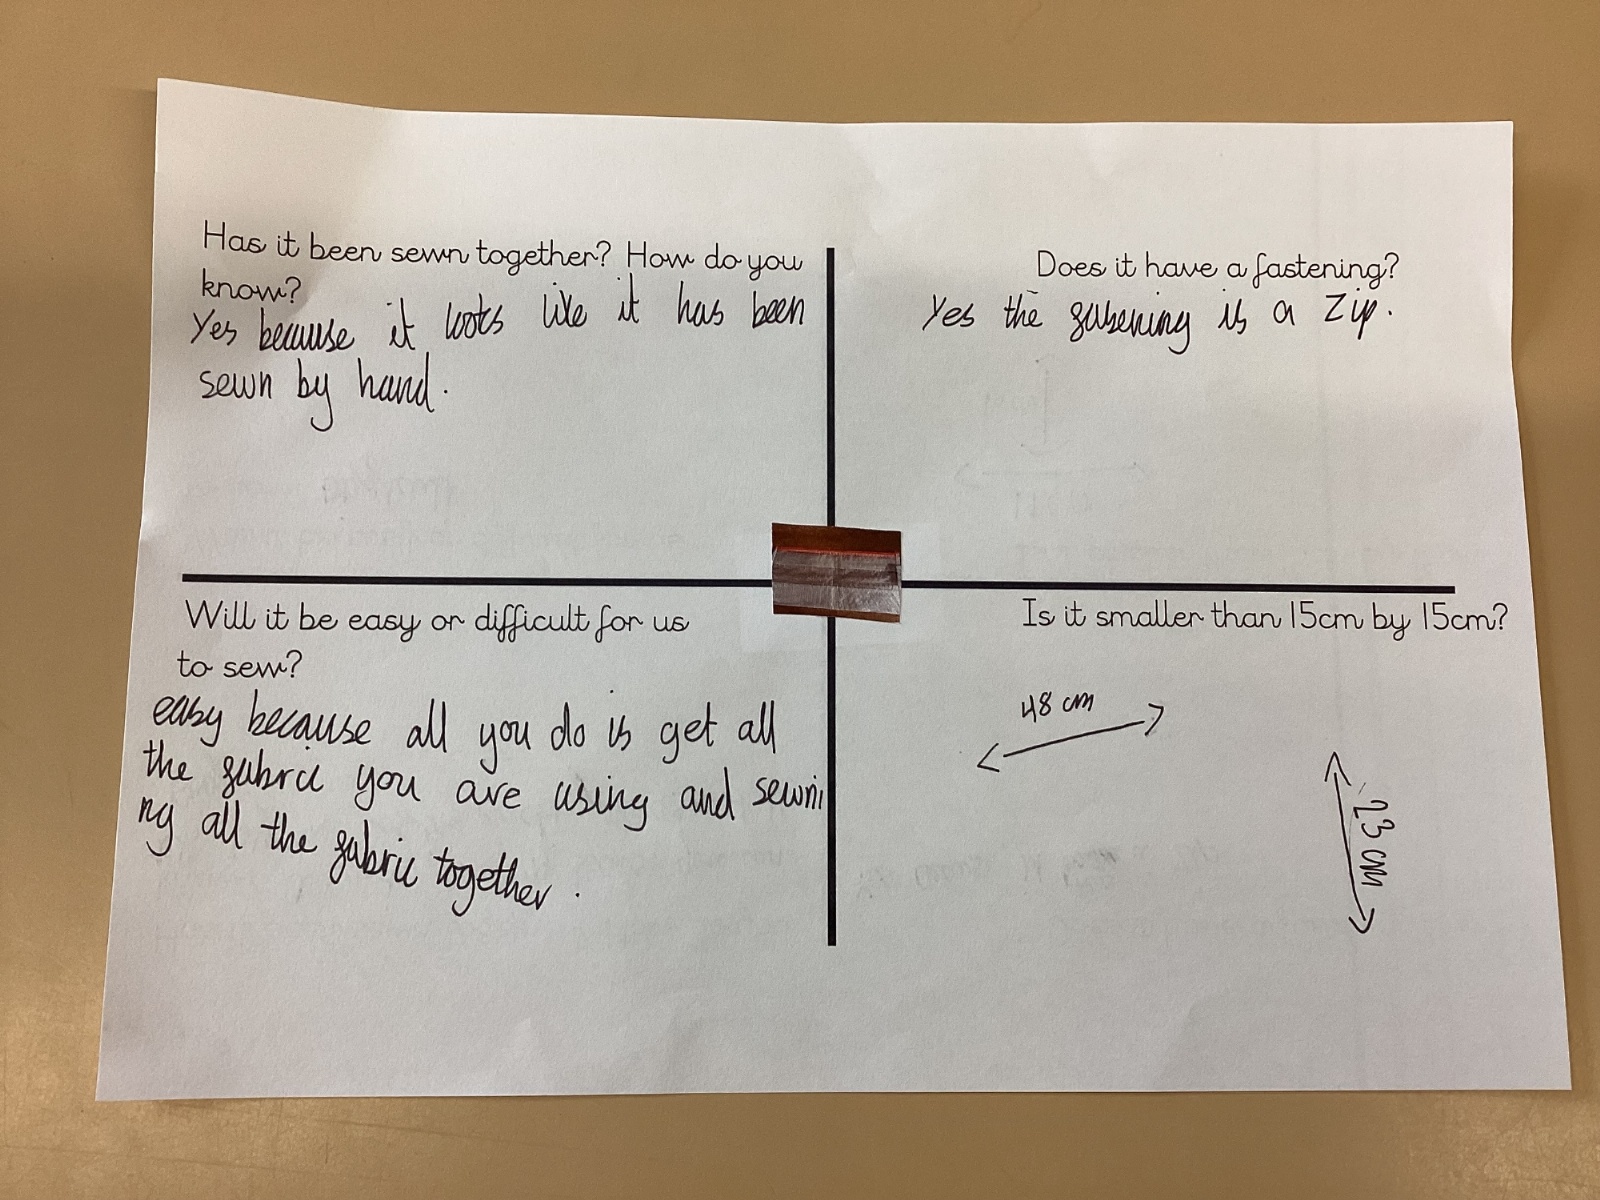 Has it been sewn together? How do you
know?
Yes because it looks like it has been
sewn by hand.
Does it have a fastening?
Yes the fasening is a zip.
Will it be easy or difficult for us
to sew?
easy because all you do is get all
the fabric you are using and sewni
ng all the fabric together.
Is it smaller than 15cm by 15cm?
48 cm
23 cm